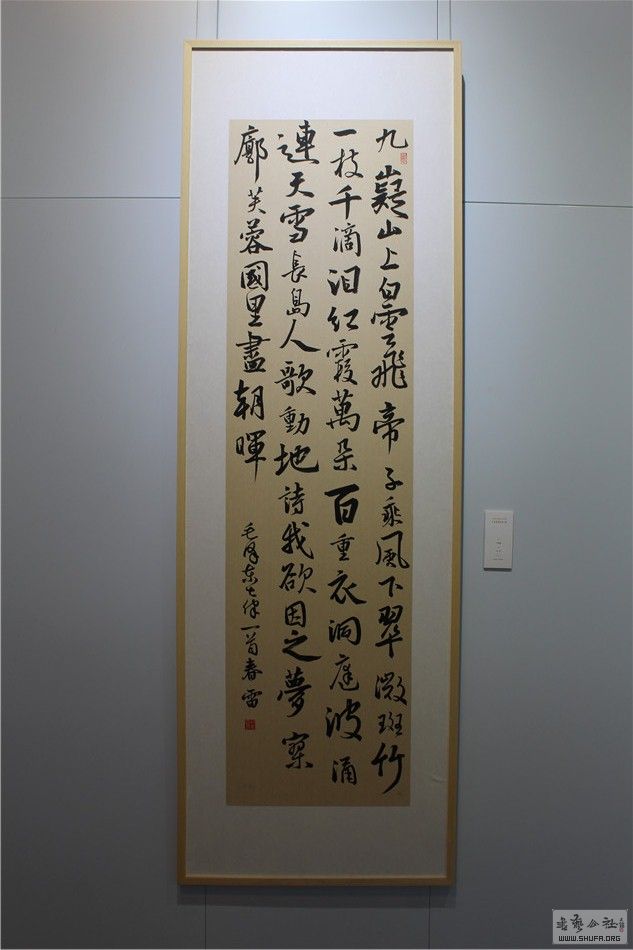 九嶷山上白雲飛帝子乘風下翠微斑竹
一枝千滴泪红霞萬朵百重衣洞庭波涌
連天雪長島人歌動地詩我欲因之夢寥
廓芙蓉國里盡朝暉
毛泽东七律一首春雷
书艺公社
WWW.SHUFA.ORG